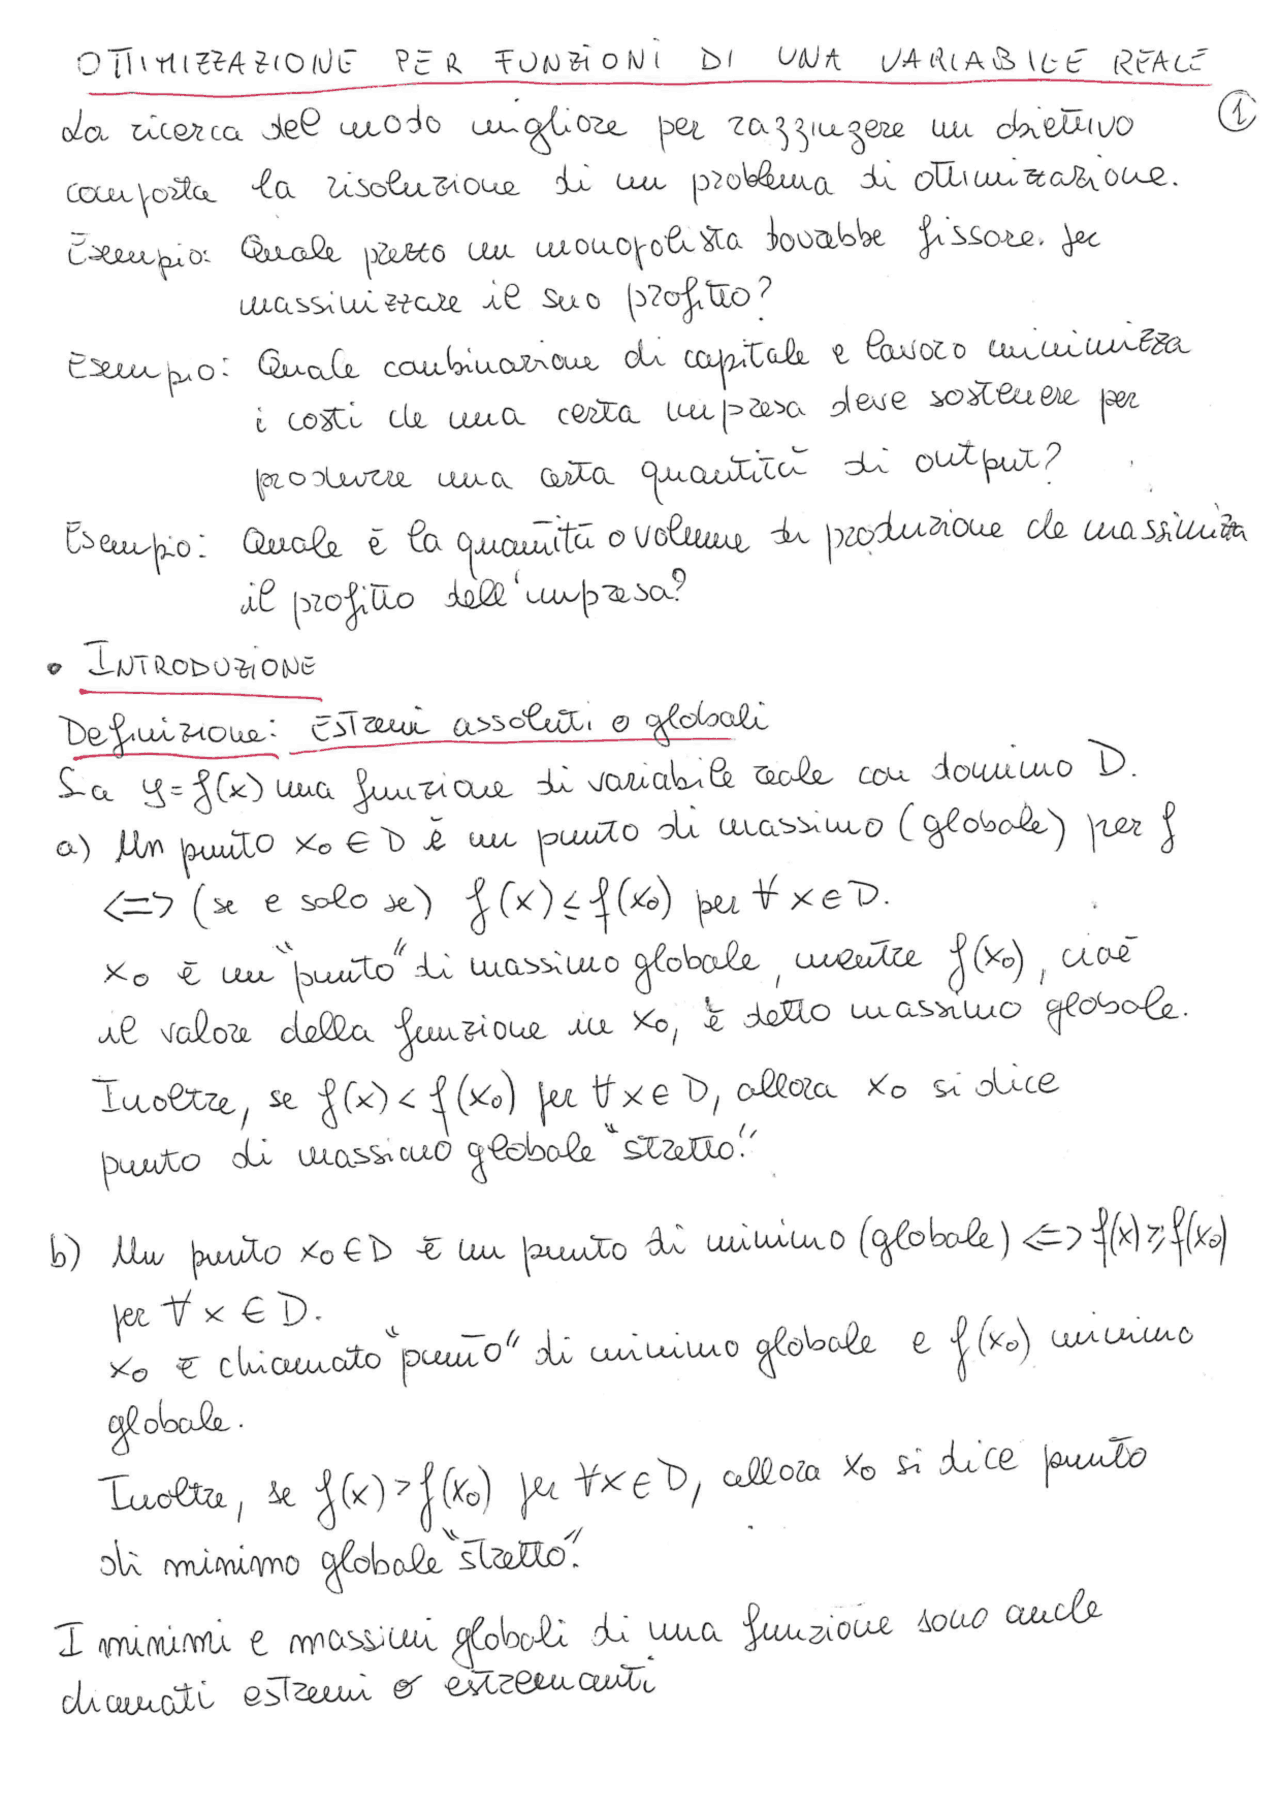 OTTIMIZZAZIONE PER FUNZIONI DI UNA VARIABILE REALE
1
La ricerca del modo migliore per raggiungere un obiettivo
comporta la risoluzione di un problema di ottimizzazione.
Esempio: Quale prezzo un monopolista dovrebbe fissare per
massimizzare il suo profitto?
Esempio: Quale combinazione di capitale e lavoro minimizza
i costi che una certa impresa deve sostenere per
produrre una certa quantità di output?
Esempio: Quale è la quantità o volume di produzione che massimizza
il profitto dell'impresa?
• INTRODUZIONE
Definizione: Estremi assoluti o globali
Sia y=f(x) una funzione di variabile reale con dominio D.
a) Un punto x₀ ∈ D è un punto di massimo (globale) per f
<=> (se e solo se) f(x) ≤ f(x₀) per ∀ x ∈ D.
x₀ è un "punto" di massimo globale, mentre f(x₀), cioè
il valore della funzione in x₀, è detto massimo globale.
Inoltre, se f(x) < f(x₀) per ∀ x ∈ D, allora x₀ si dice
punto di massimo globale "stretto".
b) Un punto x₀ ∈ D è un punto di minimo (globale) <=> f(x) ≥ f(x₀)
per ∀ x ∈ D.
x₀ è chiamato "punto" di minimo globale e f(x₀) minimo
globale.
Inoltre, se f(x) > f(x₀) per ∀x ∈ D, allora x₀ si dice punto
di minimo globale "stretto".
I minimi e massimi globali di una funzione sono anche
chiamati estremi o estremanti